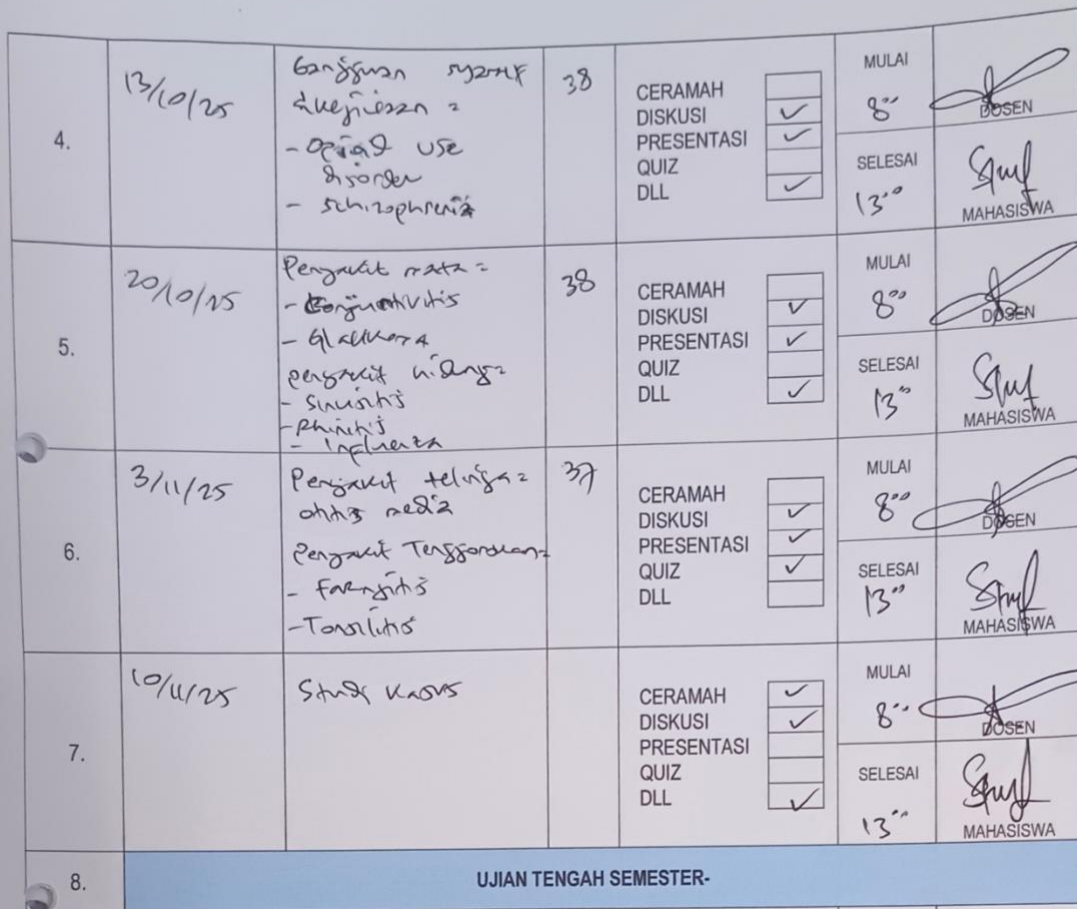 4.
13/10/25
Gangguan syaraf
& kejiwaan =
- Opiad use
disorder
- schizophrenia
38
CERAMAH
DISKUSI ✓
PRESENTASI ✓
QUIZ
DLL ✓
MULAI
8⁰⁰
DOSEN
SELESAI
13⁰⁰
MAHASISWA
5.
20/10/25
Penyakit mata =
- Conjuntivitis
- Glaukoma
penyakit hidung =
- Sinusitis
- Rhinitis
- Influenza
38
CERAMAH
DISKUSI ✓
PRESENTASI ✓
QUIZ
DLL ✓
MULAI
8⁰⁰
DOSEN
SELESAI
13⁰⁰
MAHASISWA
6.
3/11/25
Penyakit telinga =
otitis media
Penyakit Tenggorokan =
- Faringitis
- Tonsilitis
37
CERAMAH
DISKUSI ✓
PRESENTASI ✓
QUIZ ✓
DLL
MULAI
8⁰⁰
DOSEN
SELESAI
13⁰⁰
MAHASISWA
7.
10/11/25
Studi Kasus
CERAMAH ✓
DISKUSI ✓
PRESENTASI
QUIZ
DLL ✓
MULAI
8⁰⁰
DOSEN
SELESAI
13⁰⁰
MAHASISWA
8.
UJIAN TENGAH SEMESTER-